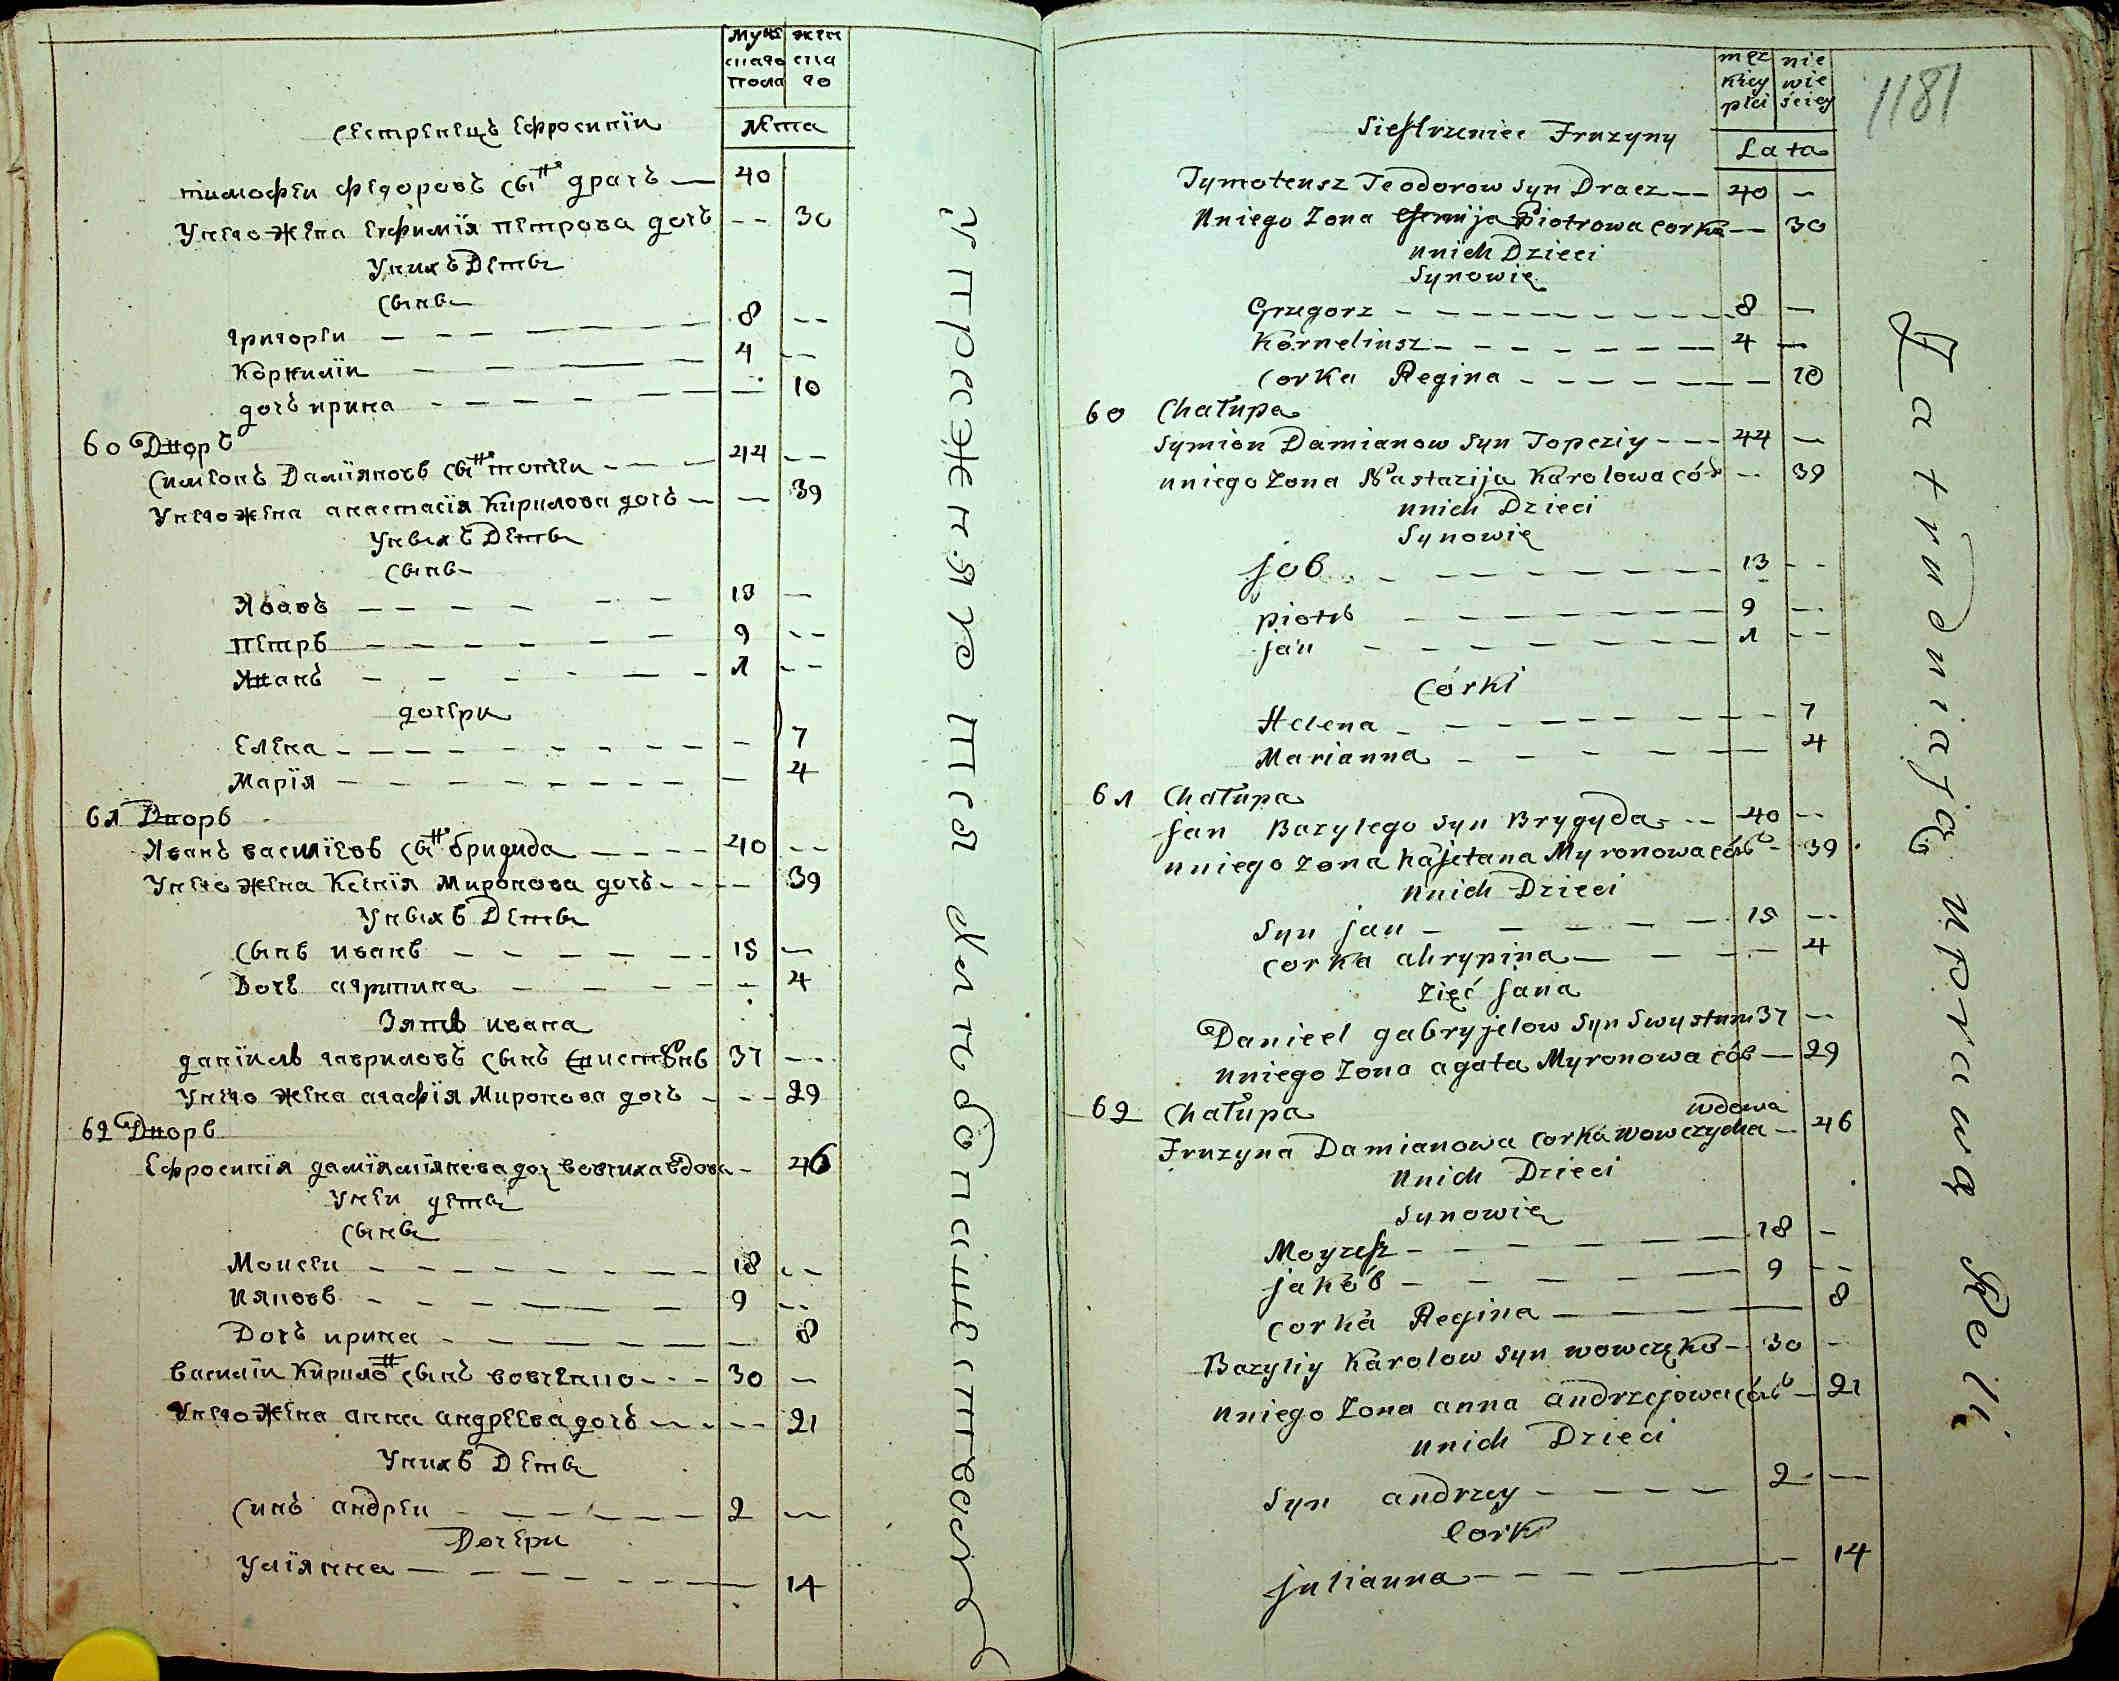 мужскаго пола
женскаго
Лета
Сестренецъ Ефросинїи
тимофеи федоровъ сынъ драчъ — 40
Унего жена Евфимїя петрова дочь -- 30
Унихъ Дети
Сыны
григореи 8 --
Корнилїи 4 --
дочь ирина 10
60 Дворъ
Симеонъ Дамїяновъ сынъ топчїи 44 --
Унего жена анастасїя Кирилова дочь — 39
Уныхъ Дети
Сыны
Яковъ 13 —
петръ 9 --
Иванъ 1 --
дочери
Елена — 7
Марїя — 4
61 Дворъ
Иванъ василїевъ сынъ бригида 40 --
Унего жена Ксенїя Миронова дочь — 39
Уныхъ Дети
Сынъ иванъ 15 —
Дочь агрипина - 4
Зять ивана
данїилъ гавриловъ сынъ 37 --
Унего жена агафїя Миронова дочь - 29
62 Дворъ
Ефросинїя дамїямїянова доч вовчиха вдова - 46
Унеи дети
Сыны
Моисеи 18 --
Ияковъ 9 --
Дочь ирина 8
василїи Кирилов сынъ вовченко 30 —
Унего жена анна андреева дочь -- 21
Унихъ Дети
Синъ андреи 2 —
Дочери
Улїянна 14
упражняются в хлебопашестве
męzkiey płci
niewieściey
Lata
1181
Siestrzeniec Fruzyny
Tymoteusz Teodorow Syn Dracz — 40 —
Uniego Zona Piotrowa corka — 30
unich Dzieci
Synowie
Grzegorz 8 —
Korneliusz 4 —
Corka Regina 10
60 Chałupa
Symion Damianow Syn Topcziy 44 —
uniego Zona Nastazija Karolowa cór -- 39
unich Dzieci
Synowie
job 13 --
piotr 9 --
jan 1 --
Córki
Helena 7
Marianna 4
61 Chałupa
jan Bazylego Syn Brygyda 40 --
uniego zona kajetana Myronowa cór - 39
unich Dzieci
Syn jan 15 --
corka ahrypina 4
Zięć jana
Danieel gabryjelow Syn Swystun 37 —
uniego Zona agata Myronowa cór — 29
62 Chałupa
wdowa
Fruzyna Damianowa corka wowczycha — 46
Unich Dzieci
Synowie
Moyzesz 18 —
jakób 9 --
corka Regina 8
Bazyliy Karolow Syn wowczęko 30 —
uniego Zona anna andrzejowa cór — 21
unich Dzieci
Syn andrzey 2 —
Corki
julianna 14
Zatrudniają uprawą Roli